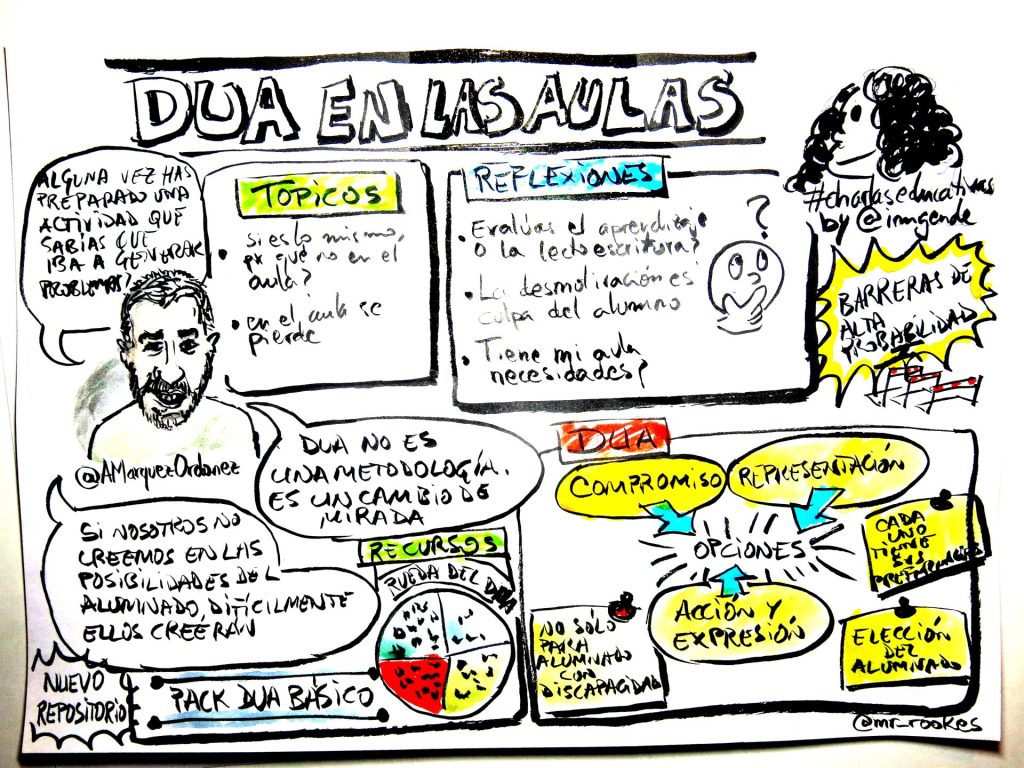 DUA EN LAS AULAS
ALGUNA VEZ HAS
PREPARADO UNA
ACTIVIDAD QUE
SABÍAS QUE
IBA A GENERAR
PROBLEMAS?
TÓPICOS
• Si es lo mismo,
por qué no en el
aula?
• en el aula se
pierde
REFLEXIONES
• Evalúas el aprendizaje
o la lectoescritura?
• La desmotivación es
culpa del alumno
• Tiene mi aula
necesidades?
?
#charlaseducativas
by @inmgende
BARRERAS DE
ALTA
PROBABILIDAD
@AMarquezOrdonez
DUA NO ES
UNA METODOLOGÍA.
ES UN CAMBIO DE
MIRADA
SI NOSOTROS NO
CREEMOS EN LAS
POSIBILIDADES DEL
ALUMINADO, DIFÍCILMENTE
ELLOS CREERÁN
RECURSOS
RUEDA DEL DUA
NUEVO
REPOSITORIO
PACK DUA BÁSICO
DUA
COMPROMISO
REPRESENTACIÓN
OPCIONES
ACCIÓN Y
EXPRESIÓN
CADA
UNO
TIENE
SUS
PREFERENCIAS
NO SÓLO
PARA
ALUMNADO
CON
DISCAPACIDAD
ELECCIÓN
DEL
ALUMINADO
@mr_rookes